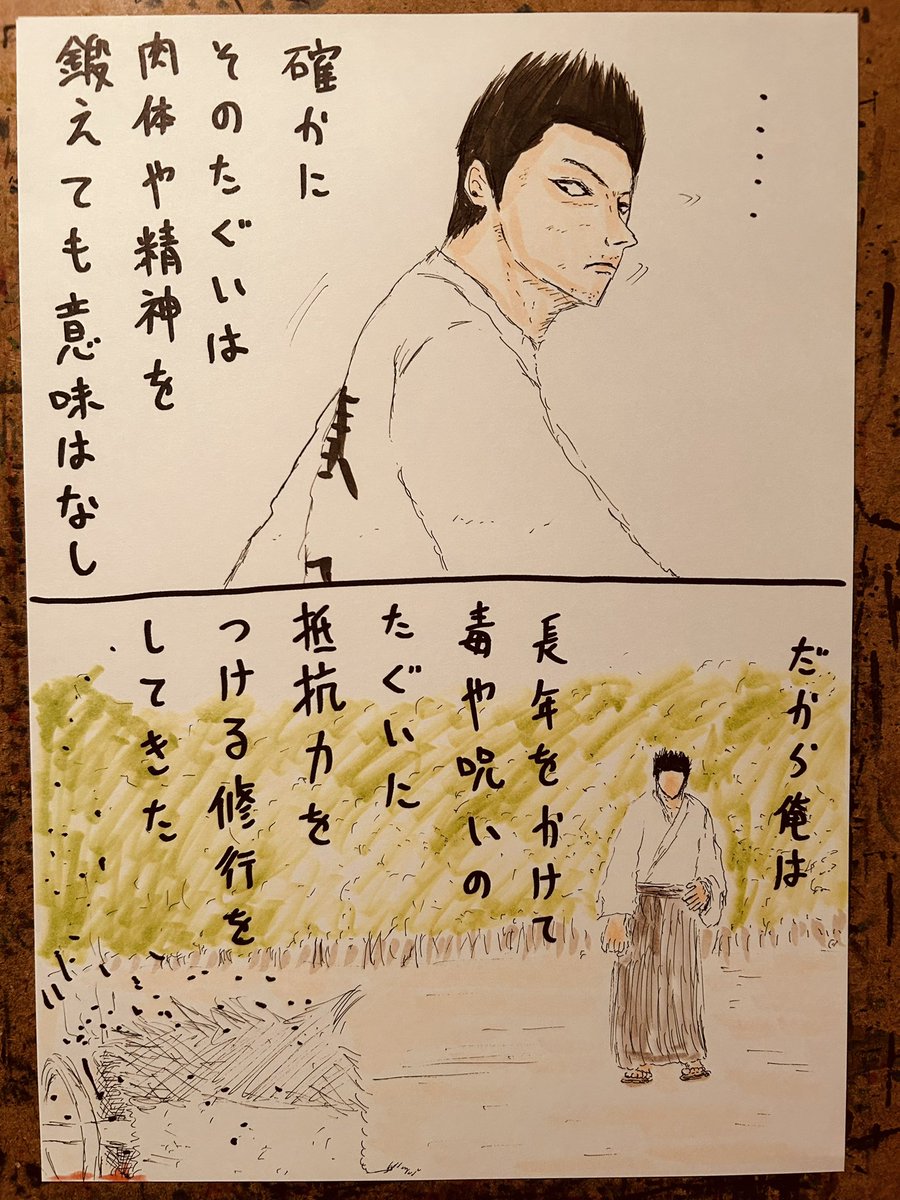 確かに
そのたぐいは
肉体や精神を
鍛えても意味はなし
だから俺は
長年をかけて
毒や呪いの
たぐいた
抵抗力を
つける修行を
してきた